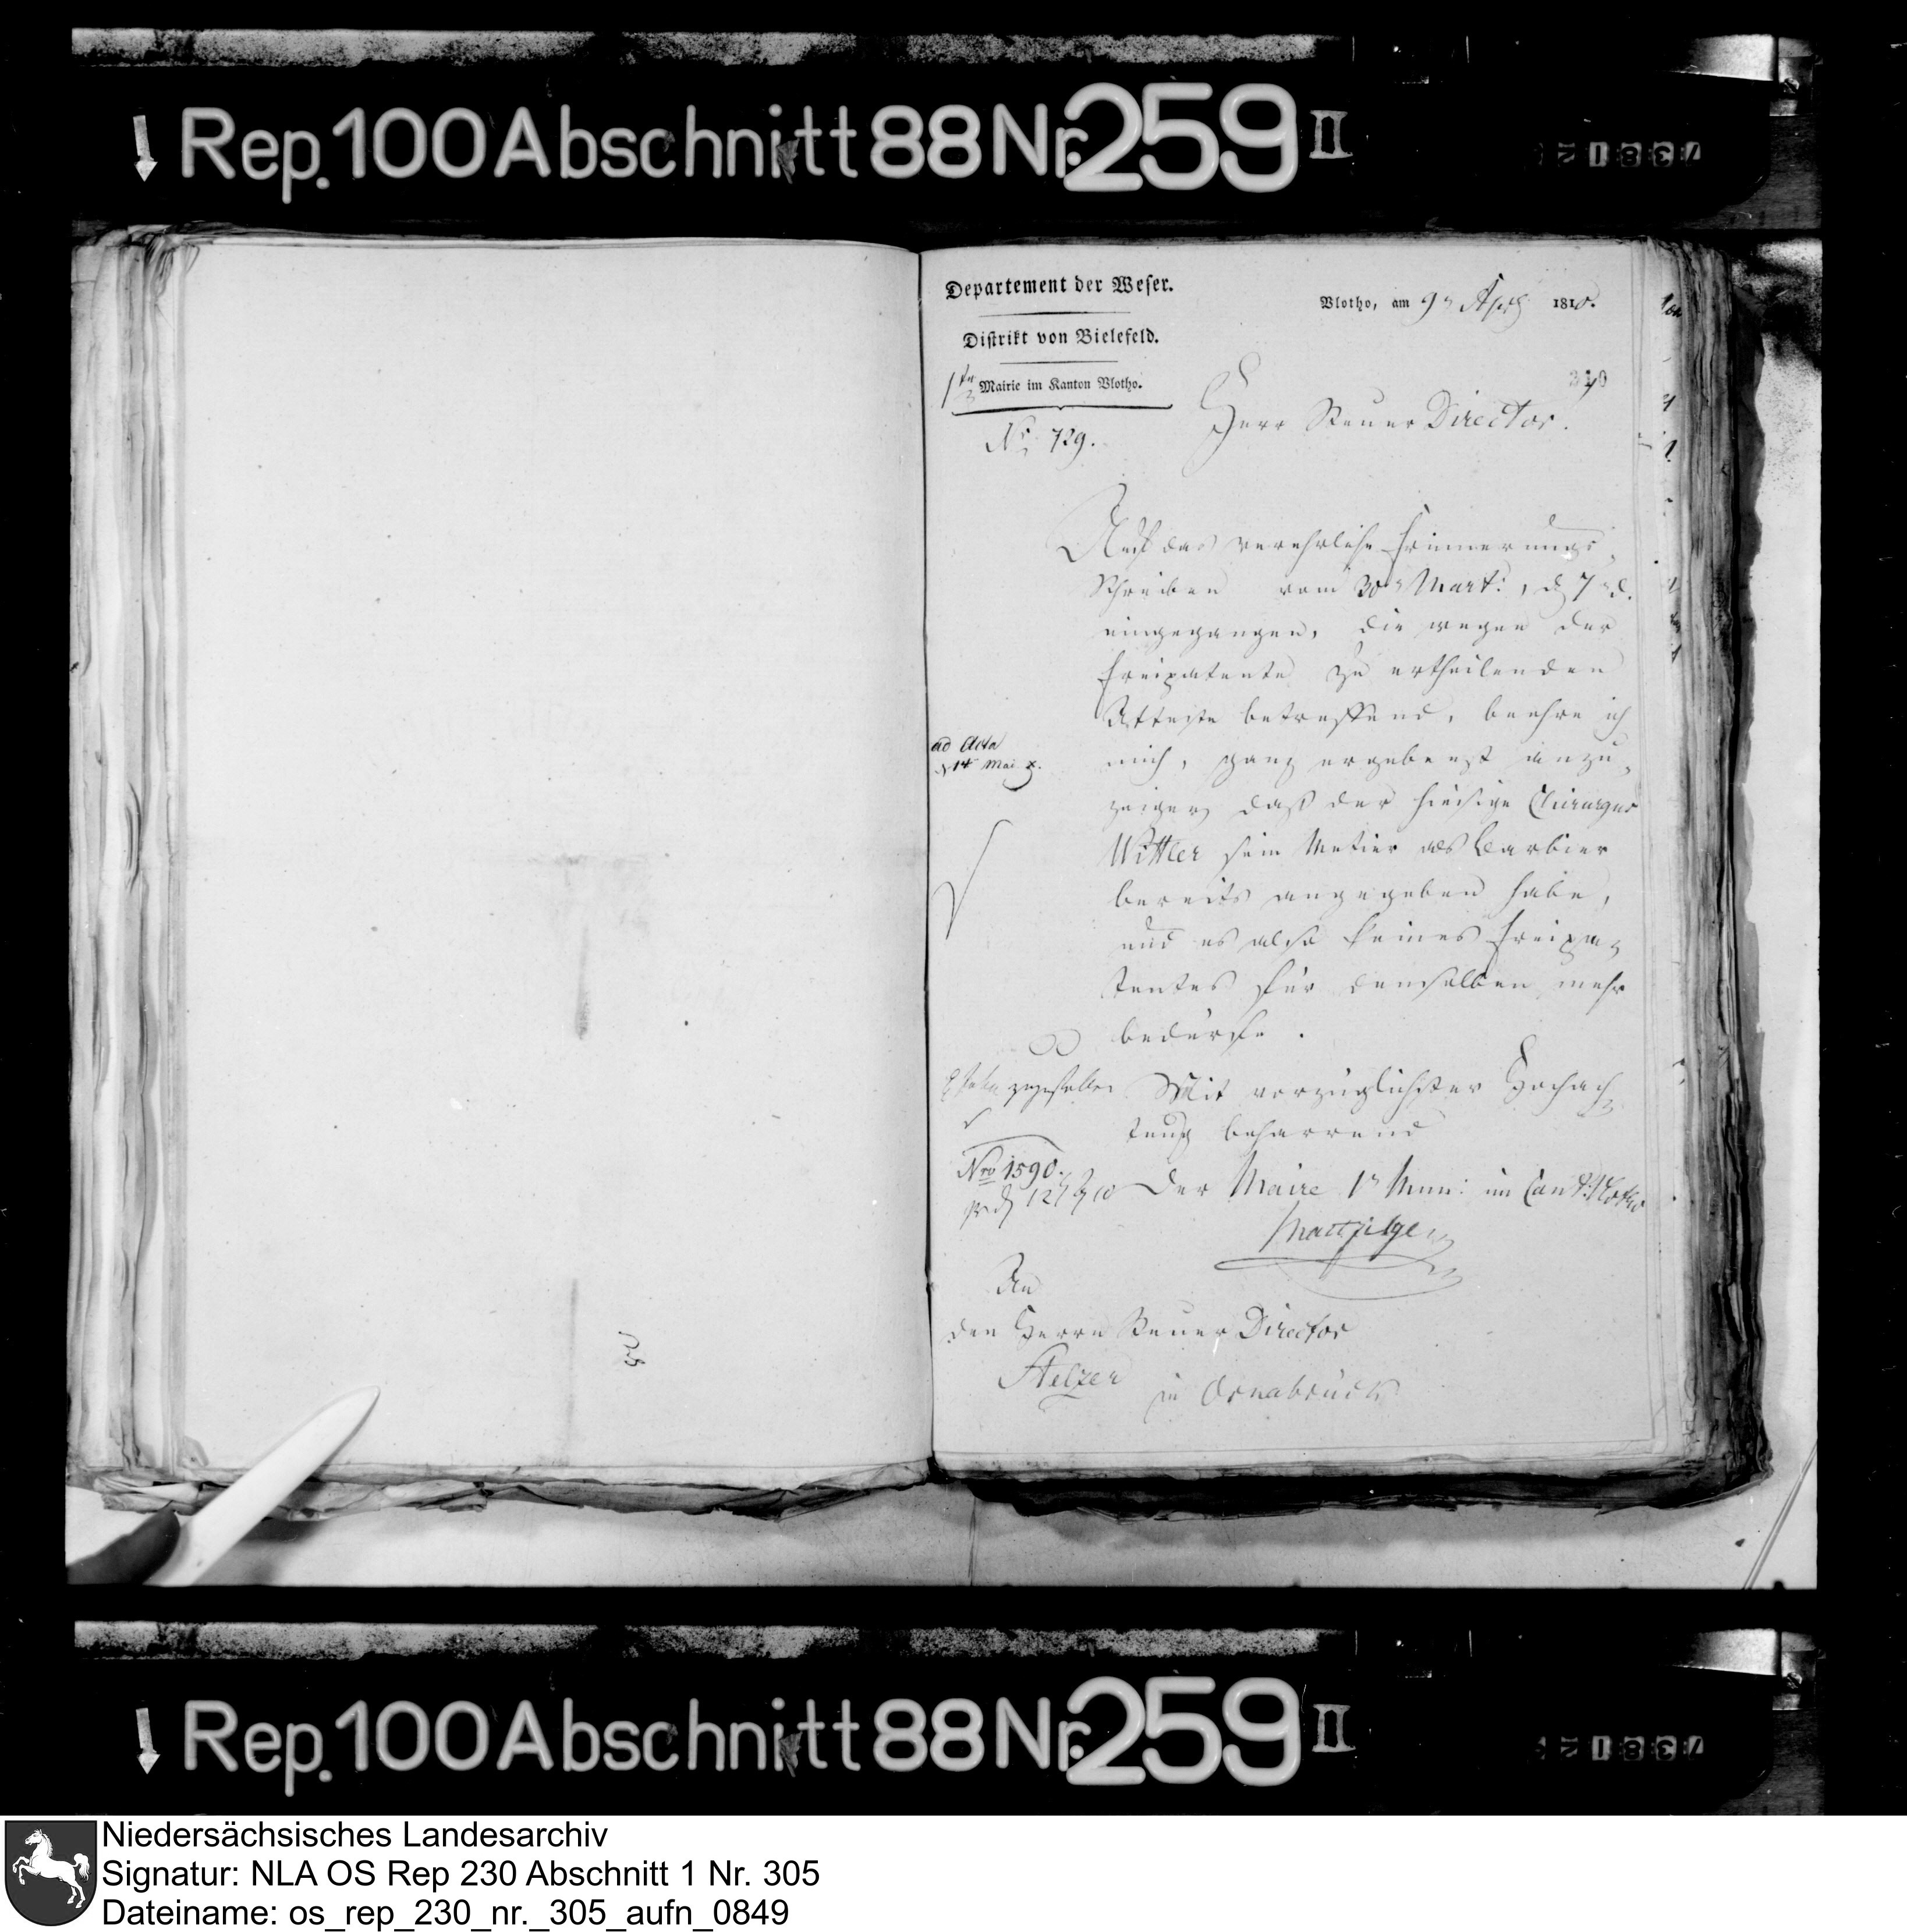 Rep. 100 Abschnitt 88 Nr. 259 II
Departement der Weser.
Distrikt von Bielefeld.
1te Mairie im Kanton Vlotho.
No. 729.
Vlotho, am 9n Apl 1810.
Herr Steuer Director!
Auf das verehrliche Erinnerungs-
Schreiben vom 30n Mart:, d 7n d.
eingegangen, die wegen der
Freipatente zu ertheilenden
Atteste betreffend, beehre ich
mich, ganz ergebenst anzu-
zeigen, daß der hiesige Chirurgus
Wittler sein Metier als Barbier
bereits angegeben habe,
und es also keines Freipa-
tentes für denselben mehr
bedürfe.
Mit vorzüglichster Hochach-
tung beharrend
Der Maire 1n Mun: im Cant: Vlotho
ad Acta
14 Mai
Nro 1590.
An
den Herrn Steuer Director
Stelzer
in Osnabrück
Rep. 100 Abschnitt 88 Nr. 259 II
Niedersächsisches Landesarchiv
Signatur: NLA OS Rep 230 Abschnitt 1 Nr. 305
Dateiname: os_rep_230_nr._305_aufn_0849